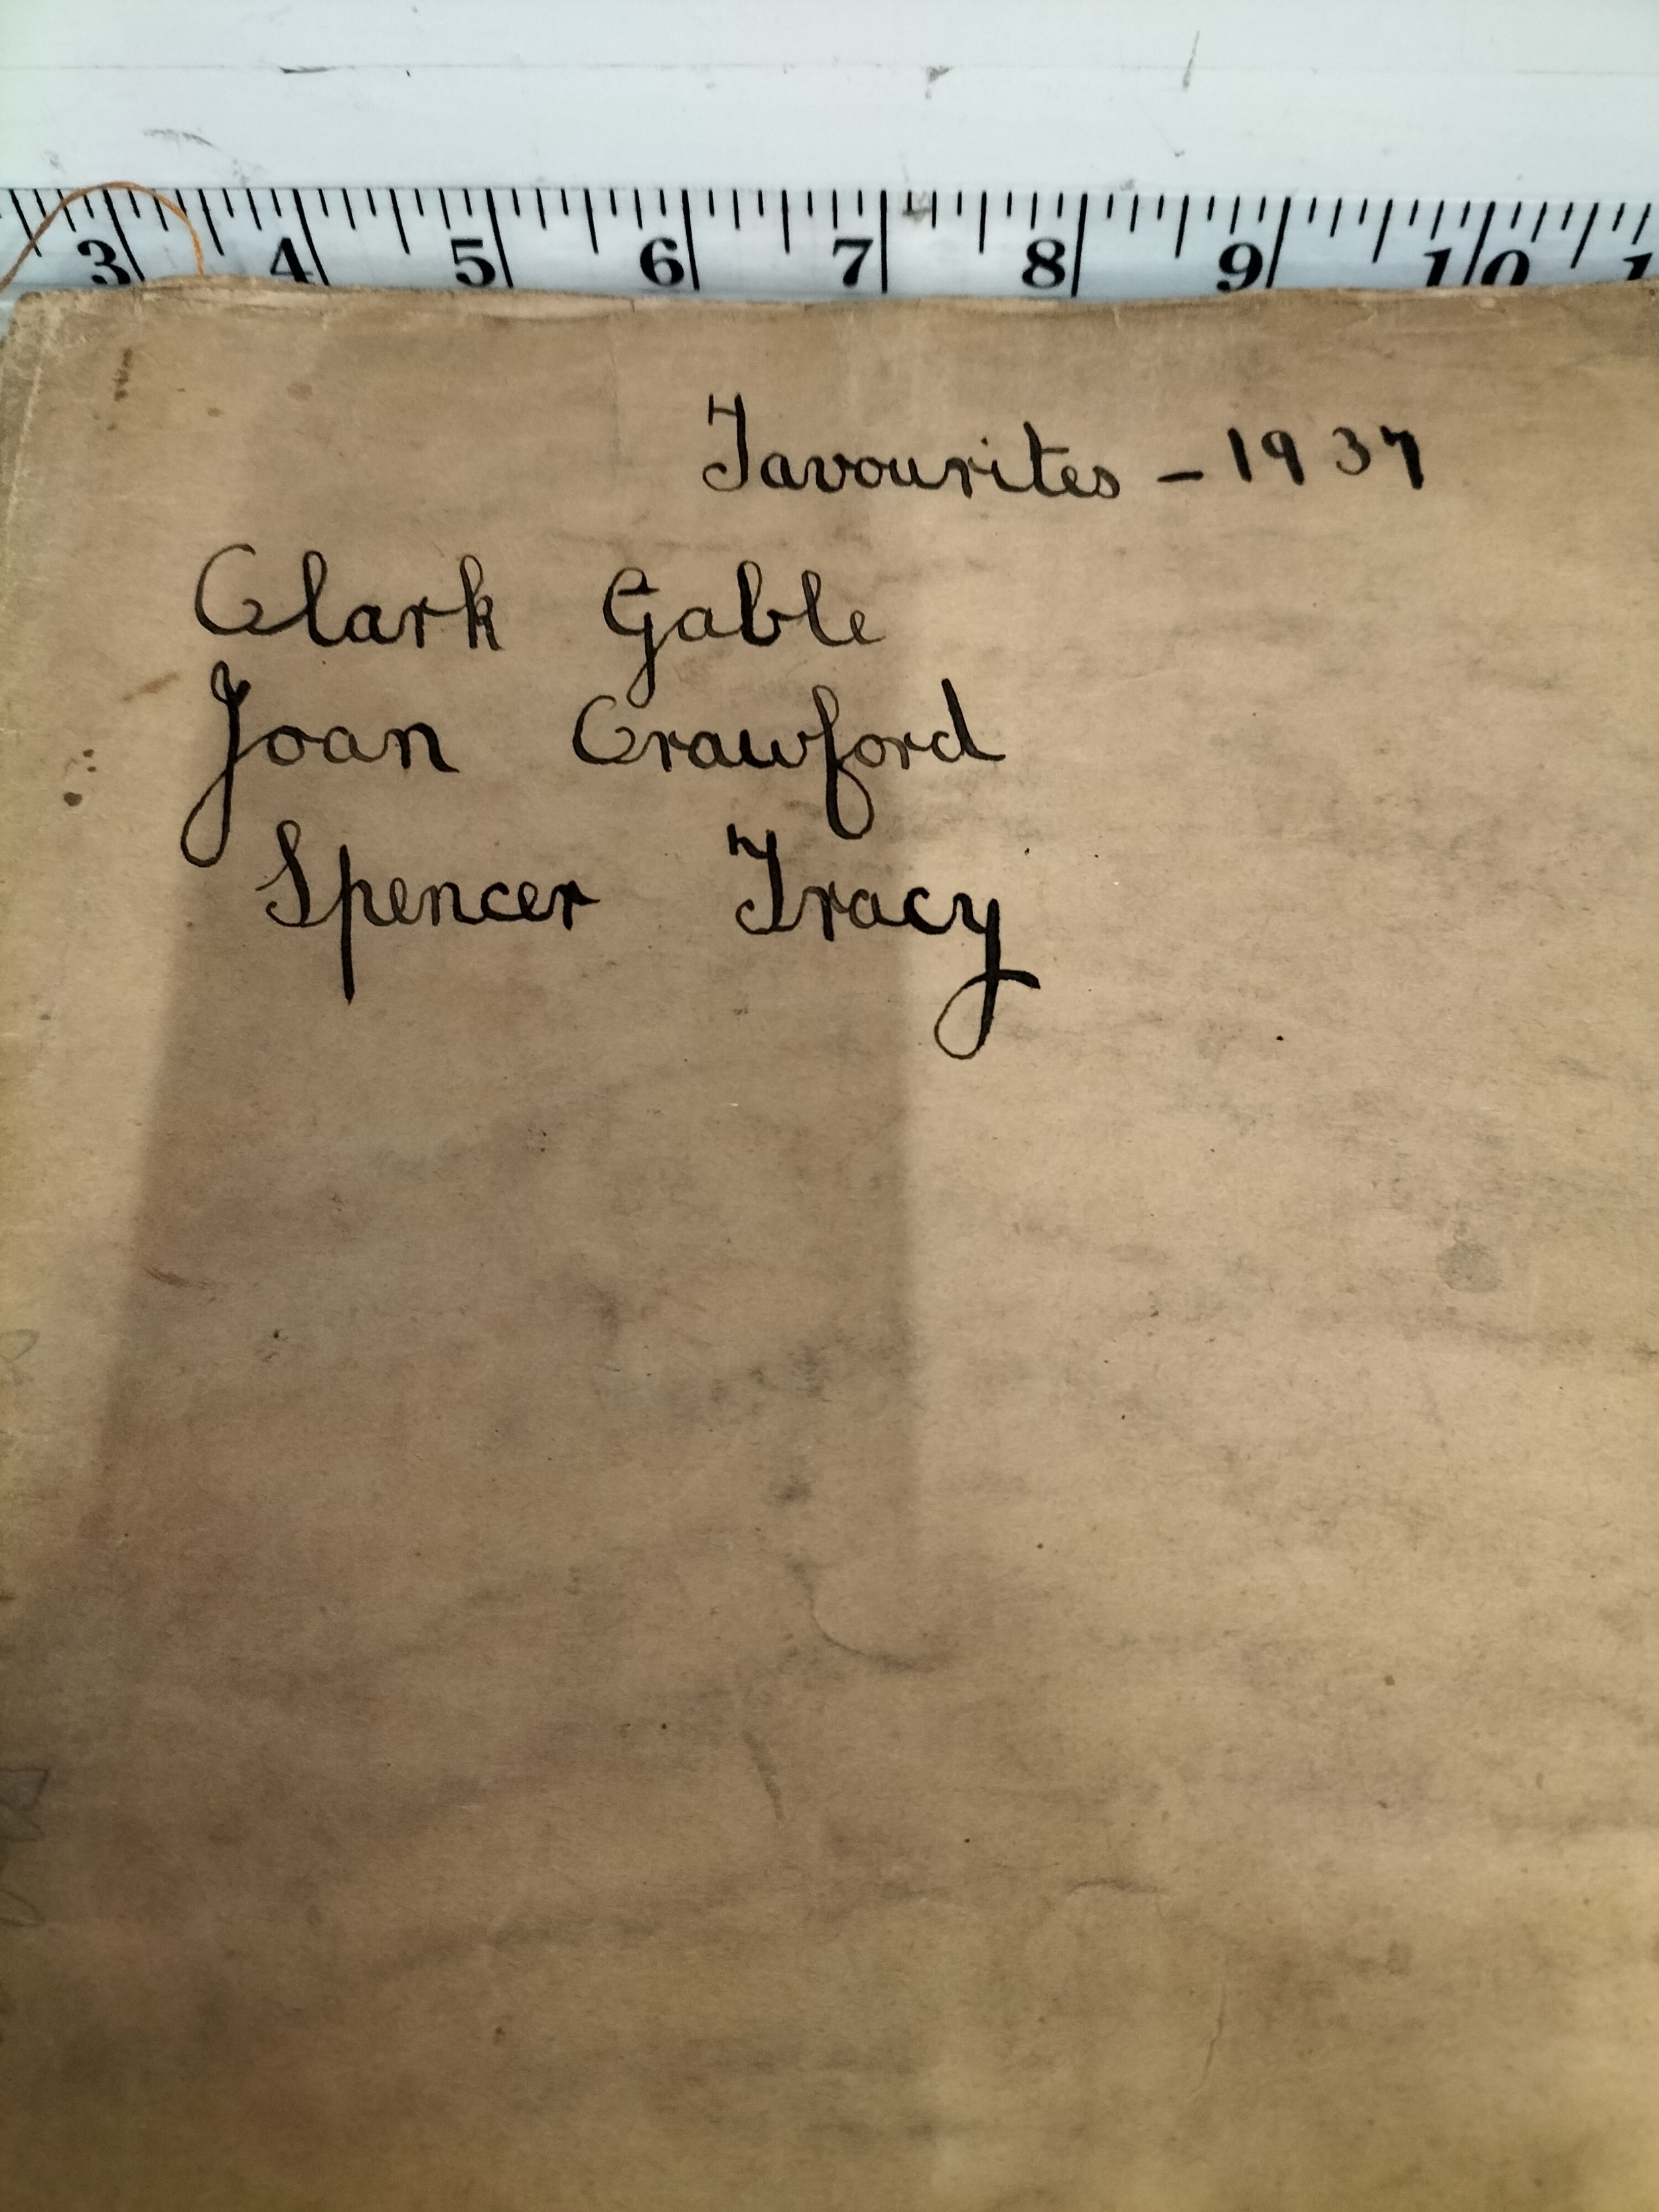 3 4 5 6 7 8 9 10
Favourites - 1937
Clark Gable
Joan Crawford
Spencer Tracy